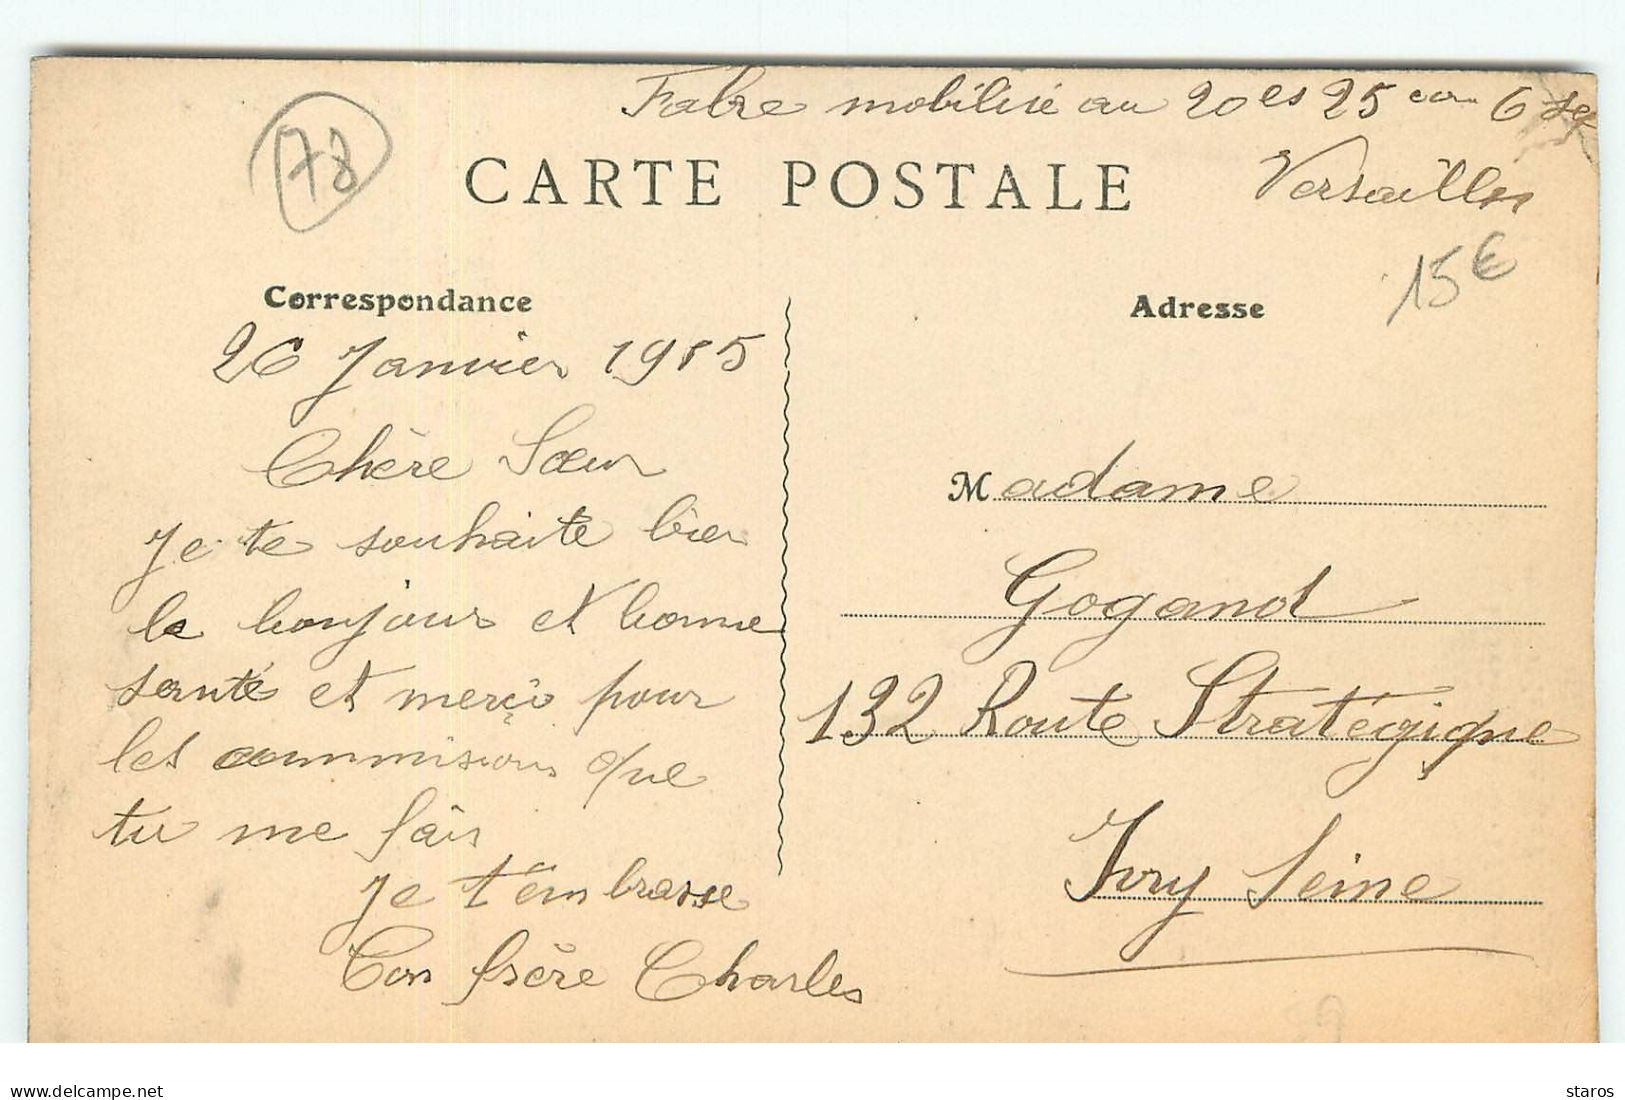 Fabre mobilisé au 20 es 25 com 6 se
CARTE POSTALE
Versailles
78
15 €
Correspondance
Adresse
26 Janvier 1915
Chère Sœur
Je te souhaite bien
le bonjour et bonne
santé et merçi pour
les commisions que
tu me fais
Je t'embrasse
Ton frère Charles
Madame
Gogand
132 Route Stratégique
Ivry Seine
www.delcampe.net
staros